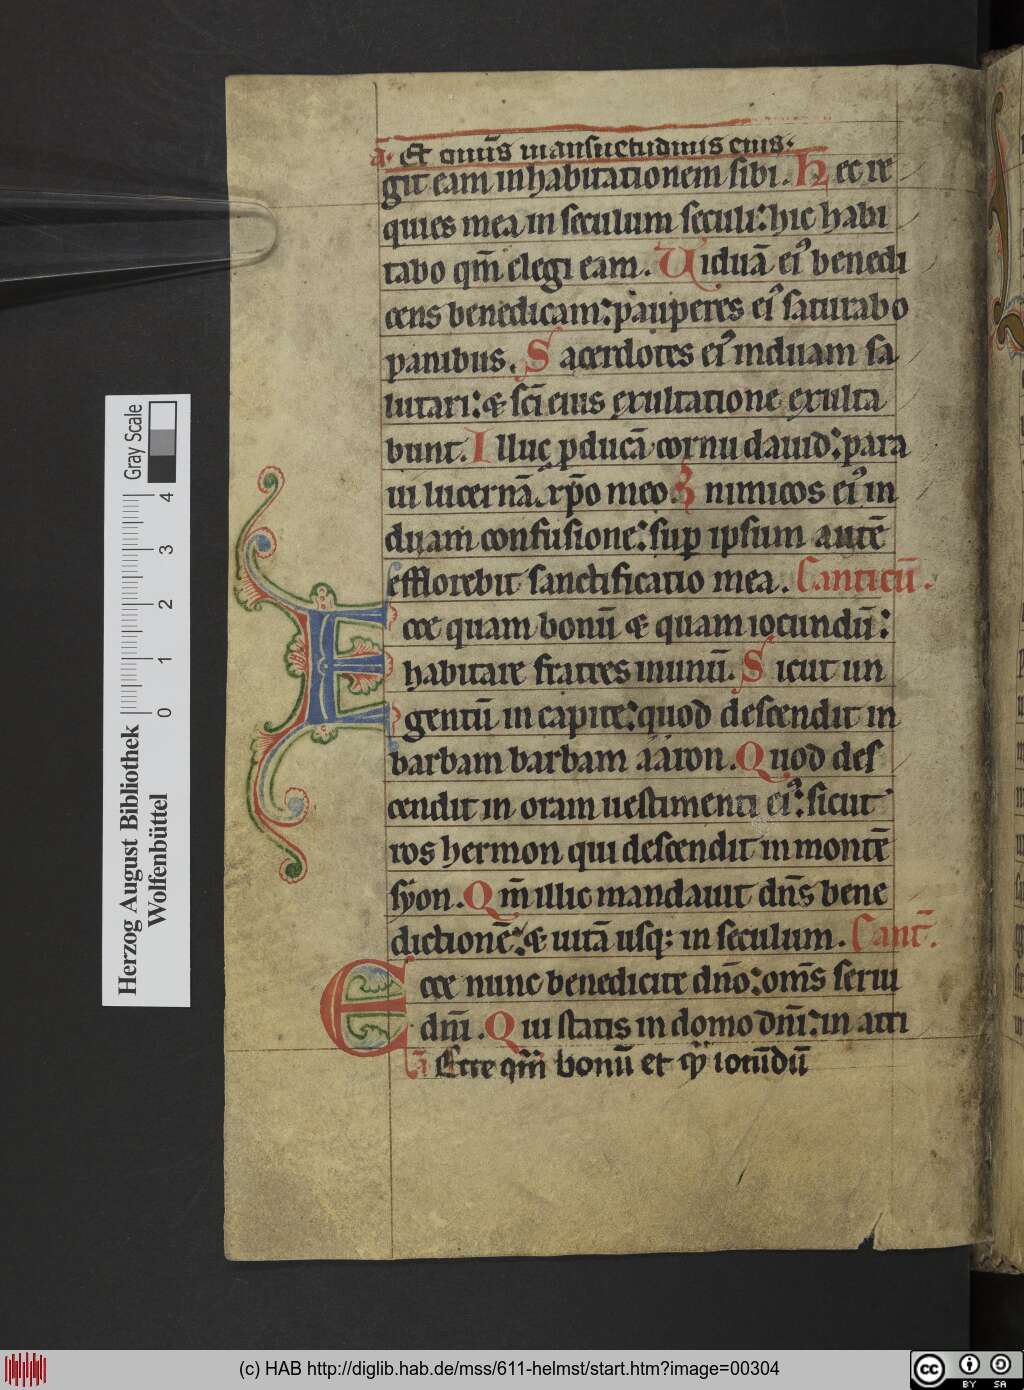 a. Et omīs mansuetudinis eius.
git eam in habitationem sibi. Hec re
quies mea in seculum seculi: hic habi
tabo qm̄ elegi eam. Uiduā eiꝰ benedi
cens benedicam: pauperes eiꝰ saturabo
panibus. Sacerdotes eiꝰ induam sa
lutari: & sc̄i eius exultatione exulta
bunt. Illuc ꝓducā cornu dauid: para
ui lucernā xp̄o meo. Inimicos eiꝰ in
duam confusione: sup ipsum autē
efflorebit sanctificatio mea. Canticū.
Ecce quam bonū & quam iocundū:
habitare fratres inunū. Sicut un
gentū in capite: quod descendit in
barbam barbam aaron. Quod des
cendit in oram uestimenti eiꝰ: sicut
ros hermon qui descendit in montē
syon. Qm̄ illic mandauit dn̄s bene
dictionē: & uitā usq; in seculum. Cant̄.
Ecce nunc benedicite dn̄o: om̄s serui
dn̄i. Qui statis in domo dn̄i: in atri
a Ecce qm̄ bonū et qͣ iocūdū
Herzog August Bibliothek
Wolfenbüttel
0 1 2 3 4
Gray Scale
(c) HAB http://diglib.hab.de/mss/611-helmst/start.htm?image=00304
cc BY SA